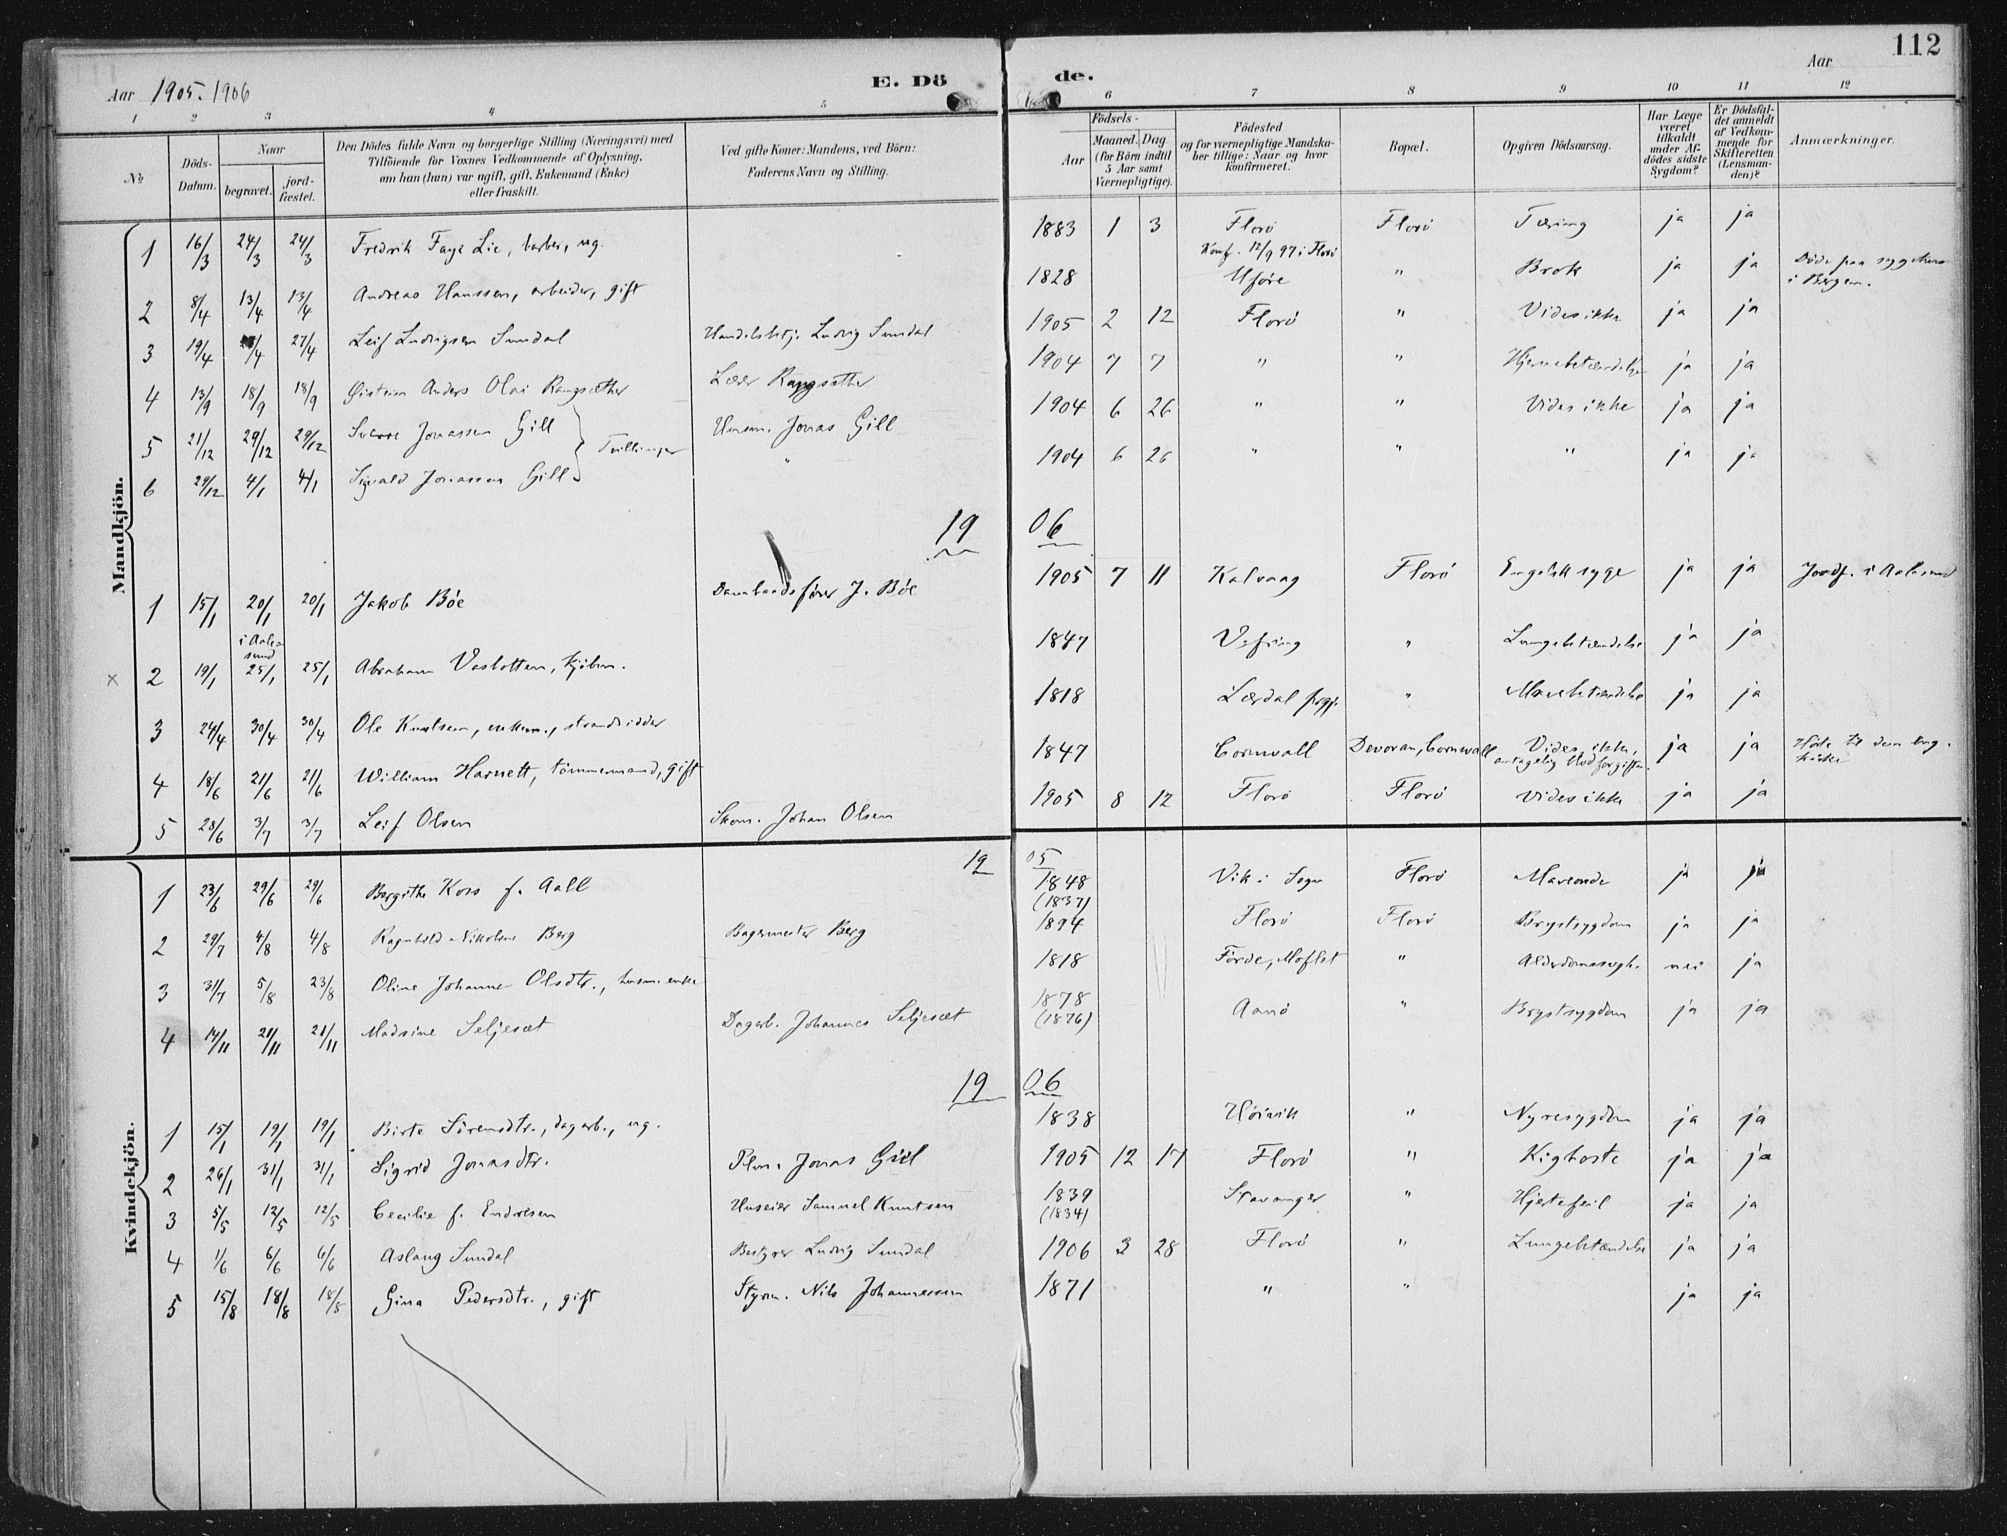 112
Aar 1905.1906
E. Dö de.
Aar
1 2 3 4 5 6 7 8 9 10 11 12
No
Döds-Datum.
Naar
begravet.
jord-fæstet.
Den Dödes fulde Navn og borgerlige Stilling (Næringsvei) med Tilföiende for Voxnes Vedkommende af Oplysning, om han (hun) var ugift, gift, Enkemand (Enke) eller fraskilt.
Ved gifte Koner: Mandens, ved Börn: Faderens Navn og Stilling.
Födsels-
Aar
Maaned. Dag
(for Börn indtil 5 Aar samt Værnepligtige).
Födested og for værnepligtige Mandskaber tillige: Naar og hvor konfirmeret.
Bopæl.
Opgiven Dödsaarsag.
Har Læge været tilkaldt under Afdödes sidste Sygdom?
Er Dödsfaldet anmeldt af Vedkommende for Skifteretten (Lensmanden)?
Anmærkninger.
Mandkjön.
1 16/3 24/3 24/3 Fredrik Faye Lie, barber, ug. 1883 1 3 Florö Konf. 12/9 97 i Florö Florö Tæring ja ja
2 8/4 13/4 13/4 Andreas Hanssen, arbeider, gift 1828 Uföre " Brok ja ja Döde paa sygehus i Bergen.
3 19/4 27/4 27/4 Leif Ludvigsen Sundal Handelsbetj. Ludvig Sundal 1905 2 12 Florö " Vides ikke ja ja
4 13/9 18/9 18/9 Öistein Anders Olai Rangsæther Lærer Rangsæther 1904 7 7 " " Hjernebetændelse ja ja
5 21/12 29/12 29/12 Sverre Jonassen Gill } Tvillinger Husm. Jonas Gill 1904 6 26 " " Vides ikke ja ja
6 29/12 4/1 4/1 Sigvald Jonassen Gill " 1904 6 26 " " " ja ja
1906
1 15/1 20/1 i Aalesund 20/1 Jakob Böe J. Böe 1905 7 11 Kalvaag Florö Engelsk syge ja ja Jordf. i Aalesund
× 2 19/1 25/1 25/1 Abraham Vasbotten, kjöbm. 1847 Vefring " Lungebetændelse ja ja
3 24/4 30/4 30/4 Ole Knutsen, enkem., strandsidder 1818 Lærdal prgj. " Mavebetændelse ja ja
4 18/6 21/6 21/6 William Harnett, tömmermand, gift 1847 Cornwall Devoran, Cornwall Vides ikke, antagelig blodforgiftn. ja ja Hörte til den eng. kirke
5 28/6 3/7 3/7 Leif Olsen Skom. Johan Olsen 1905 8 12 Florö Florö Vides ikke ja ja
Kvindekjön.
1905
1 23/6 29/6 29/6 Bergithe Kors f. Aall 1848 (1837) Vik i Sogn Florö Maveonde ja ja
2 29/7 4/8 4/8 Ragnhild Nikoline Berg Bagermester Berg 1894 Florö Florö Brystsygdom ja ja
3 31/7 5/8 23/8 Oline Johanne Olsdtr., husm. enke 1818 Förde, Moflot " Alderdomssvagh. nei ja
4 14/11 21/11 21/11 Madsine Seljeset Dagarb. Johannes Seljeset 1878 (1876) Aarö " Brystsygdom ja ja
1906
1 15/1 19/1 19/1 Birte Sörensdtr., dagarb., ug. 1838 Höivik " Nyresygdom ja ja
2 26/1 31/1 31/1 Sigrid Jonasdtr. Jonas Gill 1905 12 17 Florö " Kighoste ja ja
3 5/5 12/5 12/5 Cecilie f. Endresen Huseier Samuel Knutsen 1839 (1834) Stavanger " Hjertefeil ja ja
4 1/6 6/6 6/6 Aslaug Sundal Bestyrer Ludvig Sundal 1906 3 28 Florö " Lungebetændelse ja ja
5 15/8 18/8 18/8 Gina Pedersdtr., gift Styrm. Nils Johannessen 1871 " " ja ja